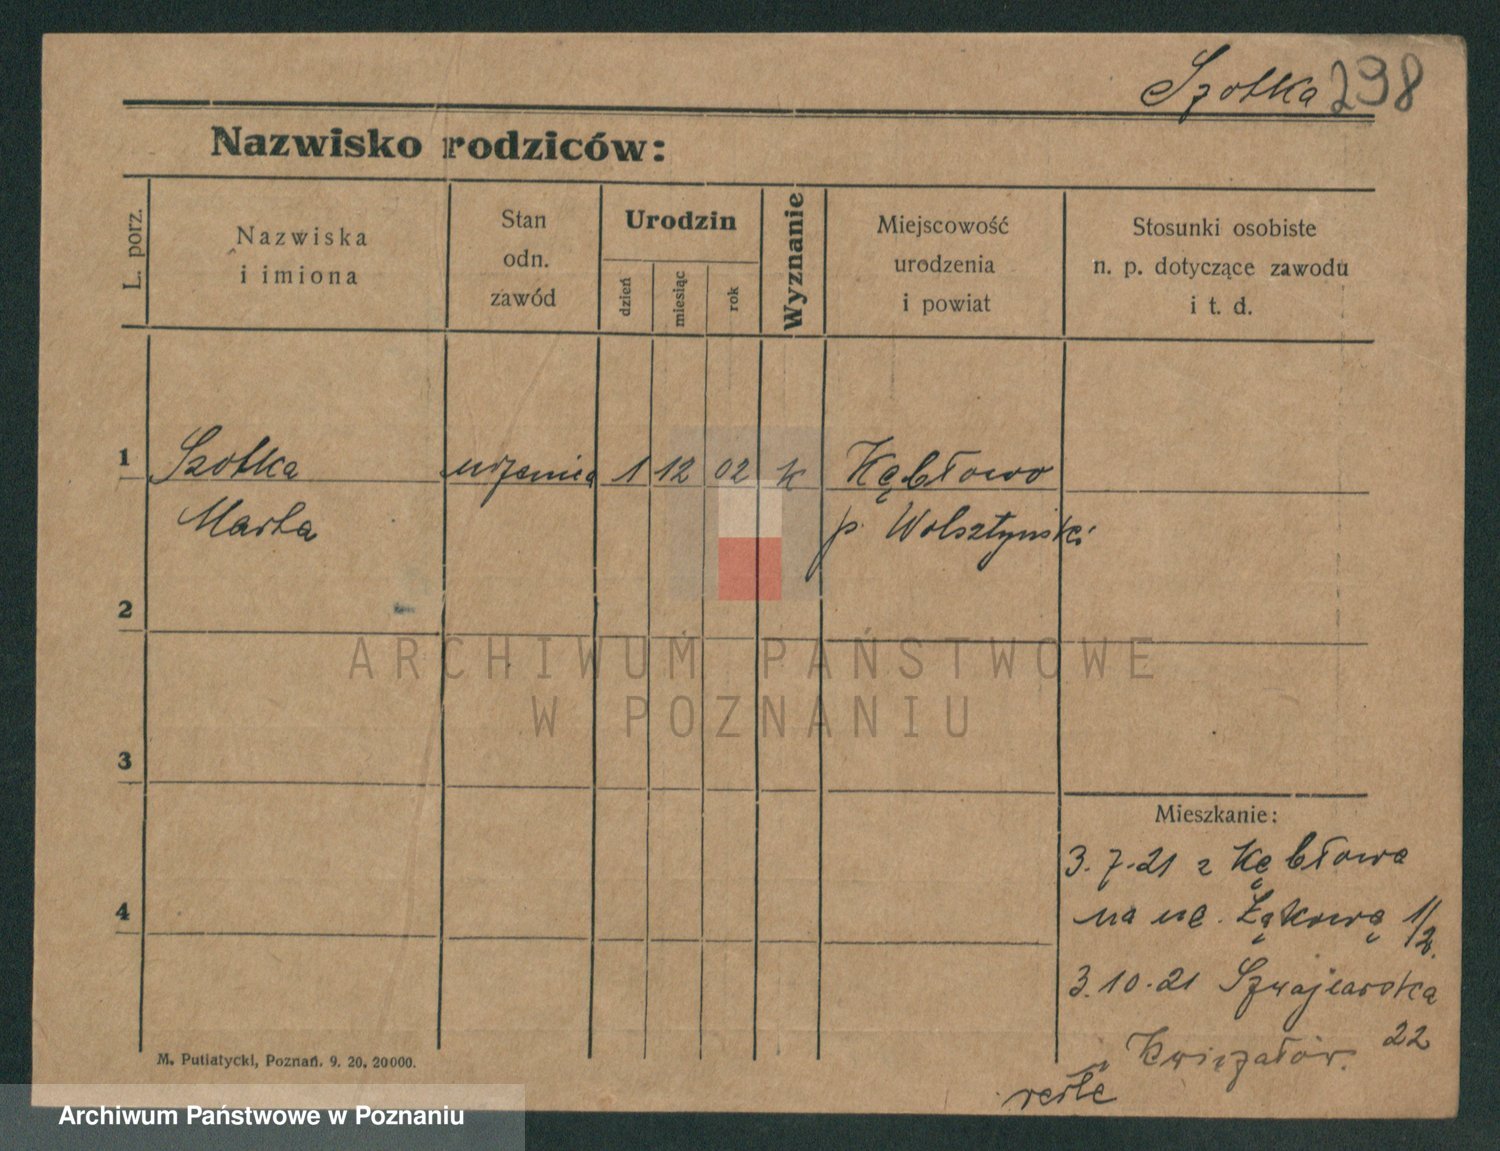 Szotka 298
Nazwisko rodziców:
L. porz.
Nazwiska
i imiona
Stan
odn.
zawód
Urodzin
dzień
miesiąc
rok
Wyznanie
Miejscowość
urodzenia
i powiat
Stosunki osobiste
n. p. dotyczące zawodu
i t. d.
1 Szotka 1 12 02 k Kębłowo
Marta p. Wolsztyński
2
ARCHIWUM PAŃSTWOWE
W POZNANIU
3
Mieszkanie:
3.7.21 z Kębłowa
4
na ul. Łąkową 1/2.
3.10.21 Szwajcarska
22
M. Putiatycki, Poznań. 9. 20. 20000.
Archiwum Państwowe w Poznaniu